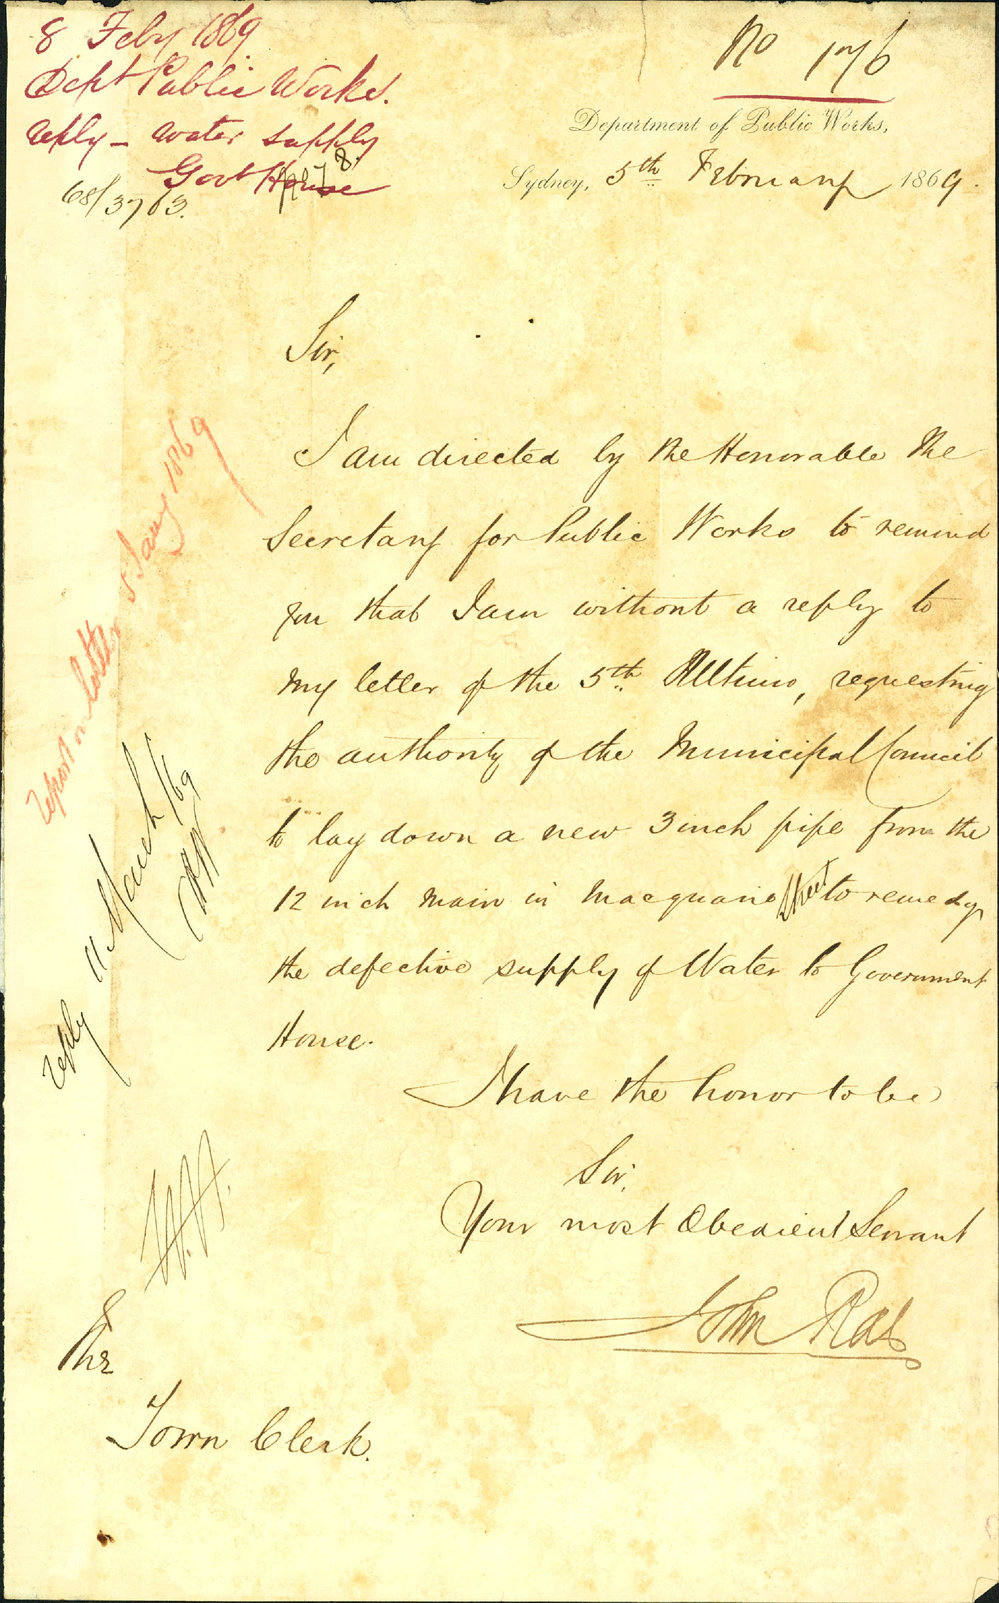 8 Feby 1869
Dept Public Works.
reply - water supply
Govt House
68/3763.
No 176
Department of Public Works,
Sydney, 5th February 1869.
Sir,
I am directed by the Honorable the
Secretary for Public Works to remind
you that I am without a reply to
my letter of the 5th Ultimo, requesting
the authority of the Municipal Council
to lay down a new 3 inch pipe from the
12 inch main in Macquarie Street to remedy
the defective supply of Water to Government
House.
I have the honor to be
Sir,
Your most Obedient Servant
John Rae
The
Town Clerk.
report on letter 5 Jany 1869
reply 11 March /69